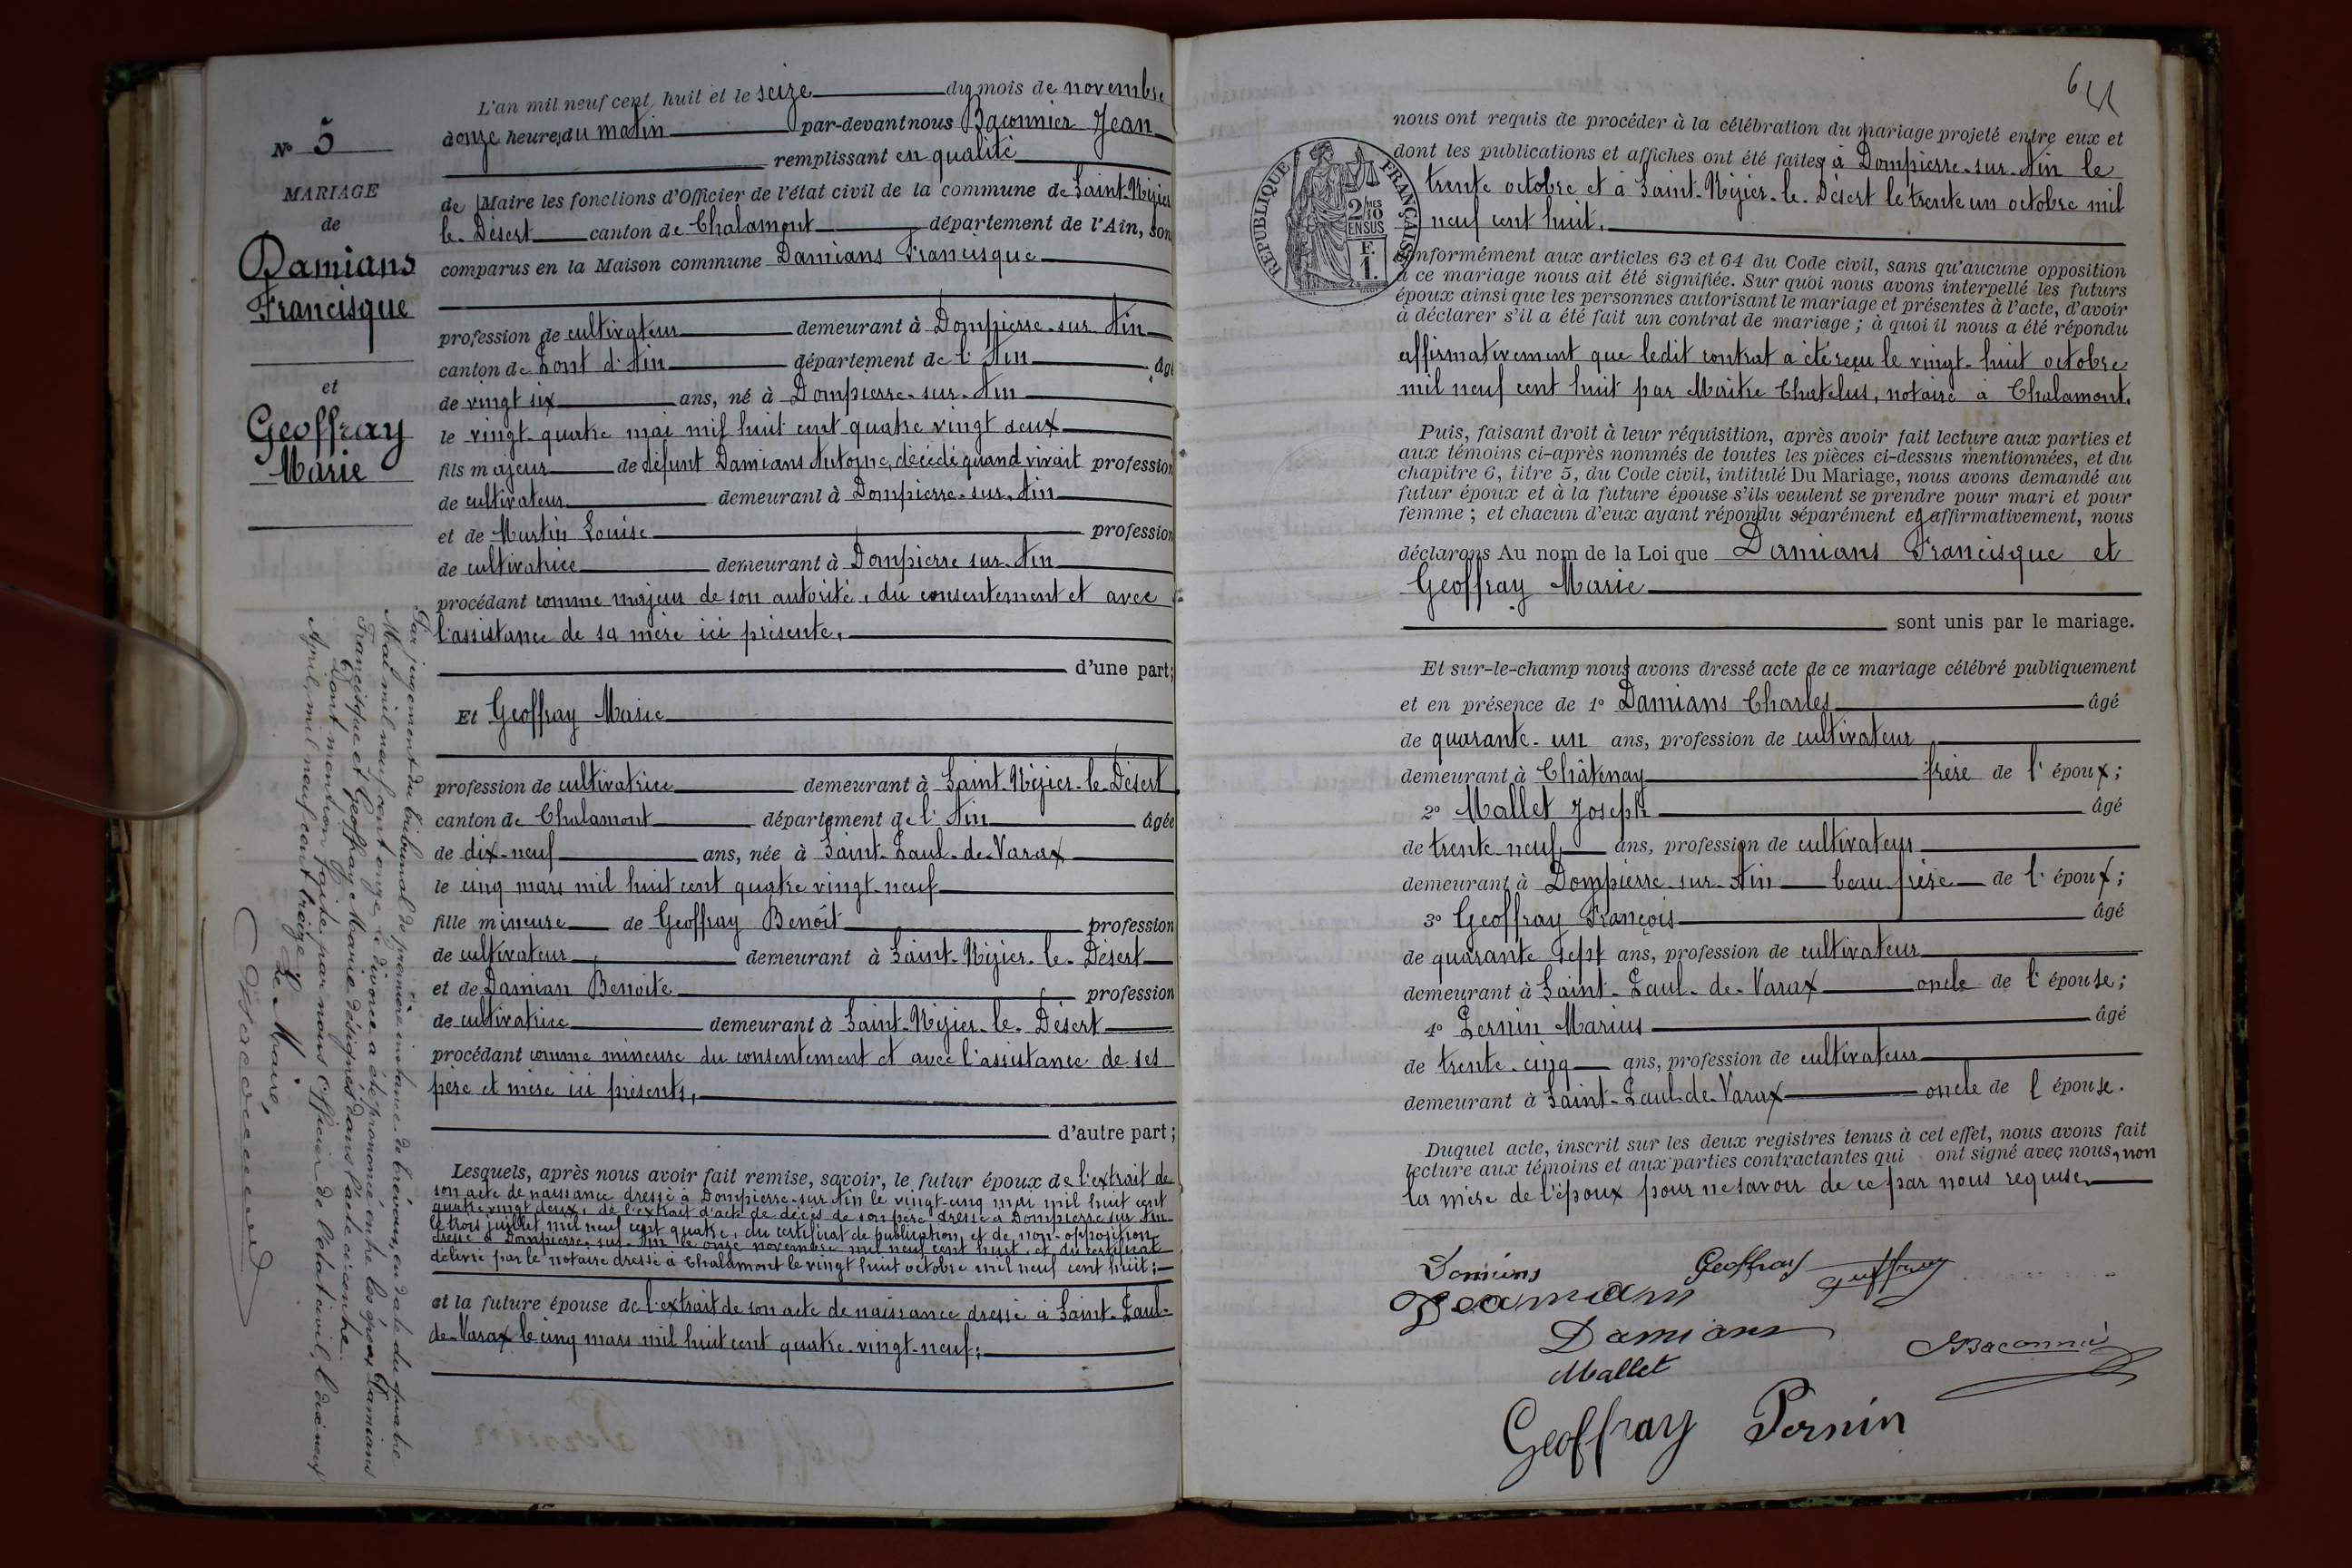 N° 5
MARIAGE
de
Damians
Francisque
et
Geoffray
Marie
L'an mil neuf cent huit et le seize du mois de novembre
à onze heures du matin par-devant nous Baconnier Jean
remplissant en qualité
de Maire les fonctions d'Officier de l'état civil de la commune de Saint-Nizier
le-Désert canton de Chalamont département de l'Ain, son
comparus en la Maison commune Damians Francisque
profession de cultivateur demeurant à Dompierre-sur-Ain
canton de Pont d'Ain département de l'Ain âgé
de vingt six ans, né à Dompierre-sur-Ain
le vingt-quatre mai mil huit cent quatre vingt deux
fils majeur de défunt Damians Antoine, décédé quand vivait profession
de cultivateur demeurant à Dompierre-sur-Ain
et de Martin Louise profession
de cultivatrice demeurant à Dompierre sur-Ain
procédant comme majeur de son autorité, du consentement et avec
l'assistance de sa mère ici présente,
d'une part;
Et Geoffray Marie
profession de cultivatrice demeurant à Saint-Nizier-le-Désert
canton de Chalamont département de l'Ain âgée
de dix-neuf ans, née à Saint-Paul-de-Varax
le cinq mars mil huit cent quatre vingt-neuf
fille mineure de Geoffray Benoît profession
de cultivateur demeurant à Saint-Nizier-le-Désert
et de Damian Benoite profession
de cultivatrice demeurant à Saint-Nizier-le-Désert
procédant comme mineure du consentement et avec l'assistance de ses
père et mère ici présents,
d'autre part;
Lesquels, après nous avoir fait remise, savoir, le futur époux de l'extrait de
son acte de naissance dressé à Dompierre-sur-Ain le vingt-cinq mai mil huit cent
quatre vingt deux, de l'extrait d'acte de décès de son père dressé à Dompierre sur Ain
le trois juillet mil neuf cent quatre, du certificat de publication et de non-opposition
dressé à Dompierre-sur-Ain le onze novembre mil neuf cent huit, et du certificat
délivré par le notaire dressé à Chalamont le vingt huit octobre mil neuf cent huit;
et la future épouse de l'extrait de son acte de naissance dressé à Saint-Paul-
de-Varax le cinq mars mil huit cent quatre-vingt-neuf;
Par jugement du tribunal de première instance de Trévoux, en date du quatre
Mai mil neuf cent onze, le divorce a été prononcé entre les époux Damians
Francisque et Geoffray Marie désignés dans l'acte ci-contre.
Dont mention faite par nous Officier de l'état civil, le dix neuf
Avril, mil neuf cent treize
Le Maire,
nous ont requis de procéder à la célébration du mariage projeté entre eux et
dont les publications et affiches ont été faites à Dompierre-sur-Ain le
trente octobre et à Saint-Nizier-le-Désert le trente un octobre mil
neuf cent huit.
RÉPUBLIQUE FRANÇAISE
2/10 MES
EN SUS
F.
1.
conformément aux articles 63 et 64 du Code civil, sans qu'aucune opposition
à ce mariage nous ait été signifiée. Sur quoi nous avons interpellé les futurs
époux ainsi que les personnes autorisant le mariage et présentes à l'acte, d'avoir
à déclarer s'il a été fait un contrat de mariage; à quoi il nous a été répondu
affirmativement que ledit contrat a été reçu le vingt-huit octobre
mil neuf cent huit par Maître Chatelus, notaire à Chalamont.
Puis, faisant droit à leur réquisition, après avoir fait lecture aux parties et
aux témoins ci-après nommés de toutes les pièces ci-dessus mentionnées, et du
chapitre 6, titre 5, du Code civil, intitulé Du Mariage, nous avons demandé au
futur époux et à la future épouse s'ils veulent se prendre pour mari et pour
femme; et chacun d'eux ayant répondu séparément et affirmativement, nous
déclarons Au nom de la Loi que Damians Francisque et
Geoffray Marie
sont unis par le mariage.
Et sur-le-champ nous avons dressé acte de ce mariage célébré publiquement
et en présence de 1° Damians Charles âgé
de quarante-un ans, profession de cultivateur
demeurant à Châtenay frère de l'époux;
2° Mallet Joseph âgé
de trente-neuf ans, profession de cultivateur
demeurant à Dompierre-sur-Ain beau frère de l'époux;
3° Geoffray François âgé
de quarante sept ans, profession de cultivateur
demeurant à Saint-Paul-de-Varax oncle de l'épouse;
4° Pernin Marius âgé
de trente-cinq ans, profession de cultivateur
demeurant à Saint-Paul-de-Varax oncle de l'épouse.
Duquel acte, inscrit sur les deux registres tenus à cet effet, nous avons fait
lecture aux témoins et aux parties contractantes qui ont signé avec nous, non
la mère de l'époux pour ne savoir de ce par nous requise
Damians Geoffray Geoffray
Damian
Damians
Mallet
Baconnier
Geoffray Pernin